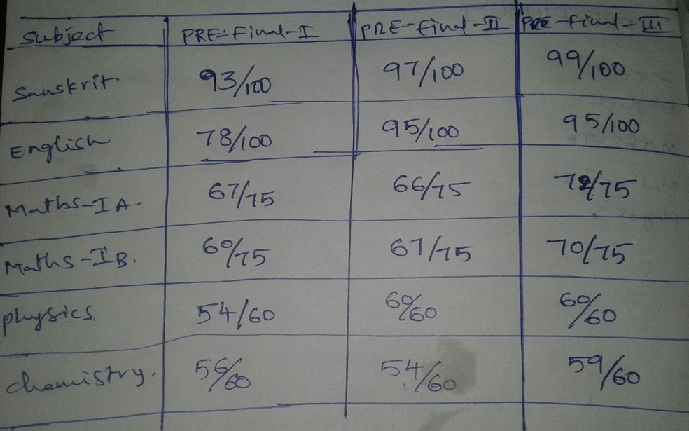 Subject PRE-Final-I PRE-Final-II PRE-Final-III
Sanskrit 93/100 97/100 99/100
English 78/100 95/100 95/100
Maths-IA. 67/75 66/75 72/75
Maths-IB. 60/75 67/75 70/75
physics 54/60 60/60 60/60
chemistry. 56/60 54/60 59/60